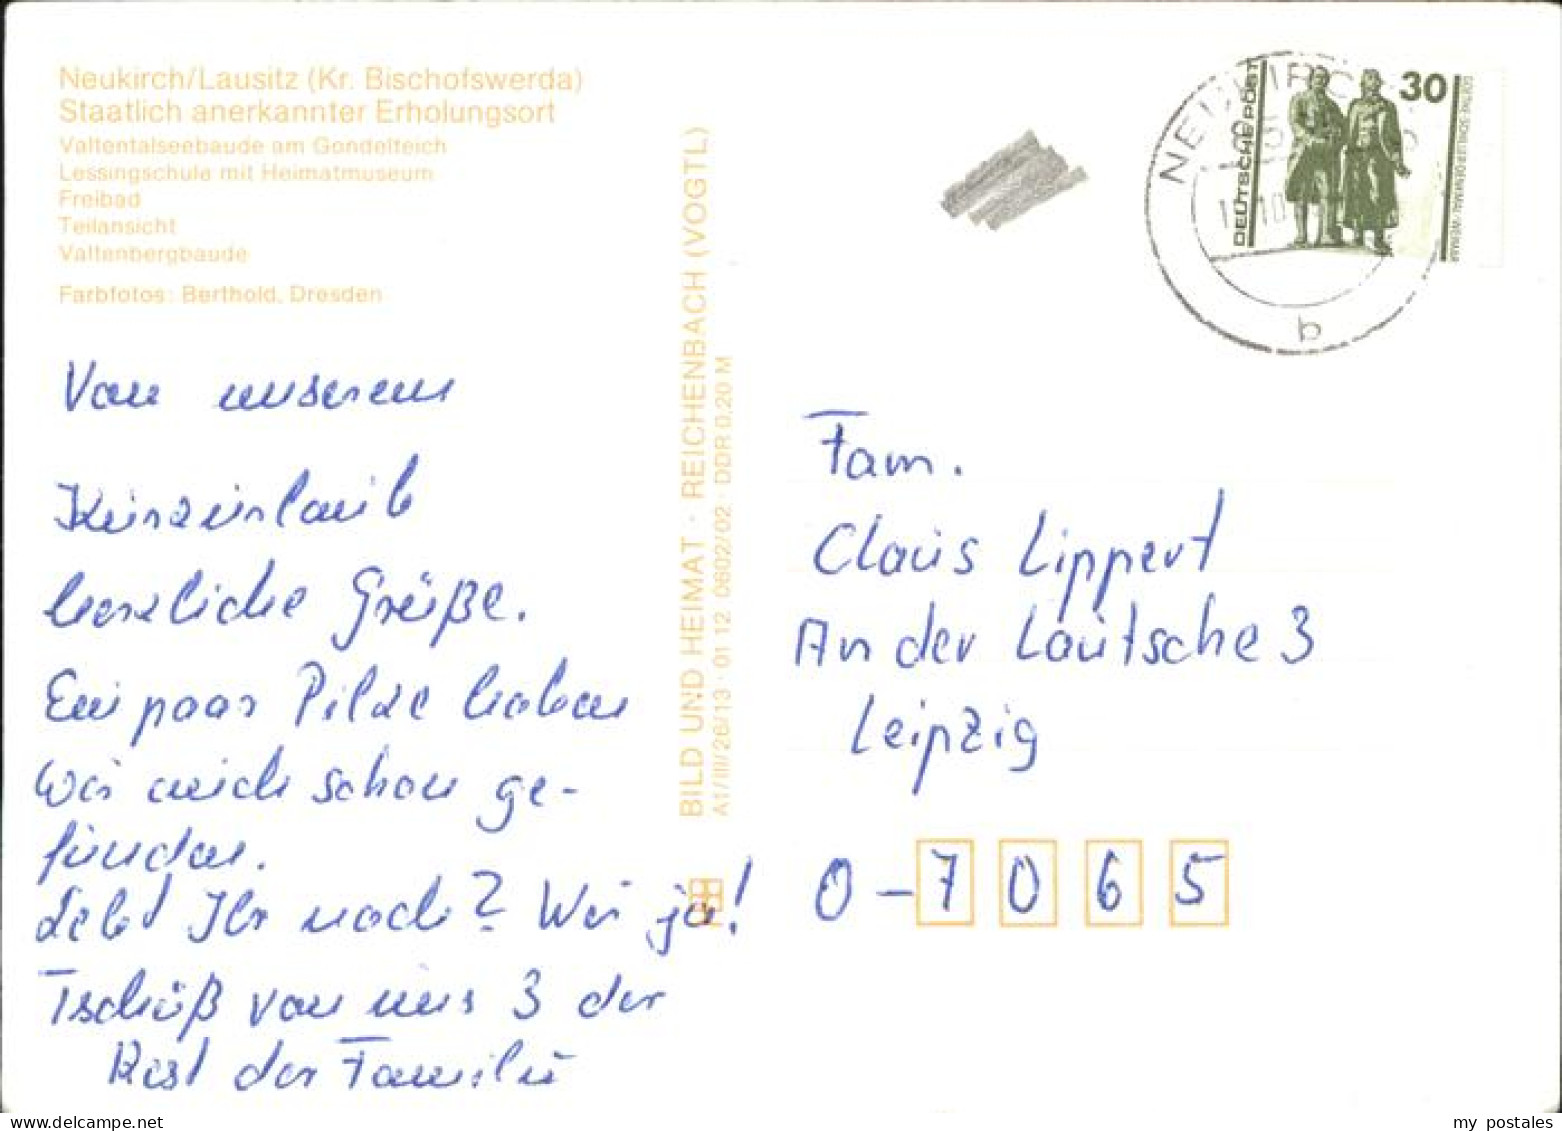 Neukirch/Lausitz (Kr. Bischofswerda)
Staatlich anerkannter Erholungsort
Valtentalseebaude am Gondelteich
Lessingschule mit Heimatmuseum
Freibad
Teilansicht
Valtenbergbaude
Farbfotos: Berthold, Dresden
Von unserem
Kurzurlaub
herzliche Grüße.
Ein paar Pilze haben
wir auch schon ge-
funden.
Lebt Ihr noch? Wir ja!
Tschüß von uns 3 der
Rest der Familie
BILD UND HEIMAT · REICHENBACH (VOGTL)
A1/III/26/13 · 01 12 0602/02 · DDR 0,20 M
NEUKIRCH
10
b
DEUTSCHE POST
30
GOETHE-SCHILLER-DENKMAL WEIMAR
Fam.
Claus Lippert
An der Lautsche 3
Leipzig
O-7065
my postales